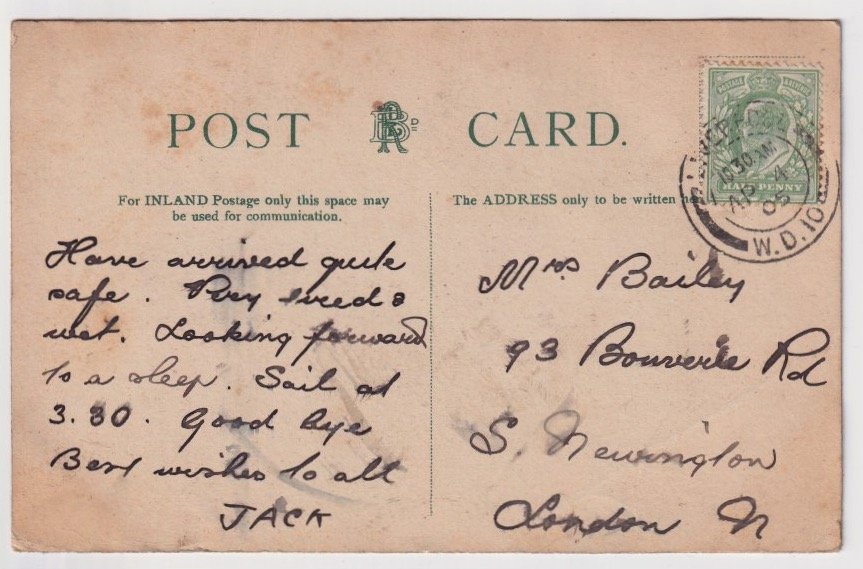 POST CARD.
For INLAND Postage only this space may
be used for communication.
The ADDRESS only to be written
Have arrived quite
safe. Very &
wet. Looking forward
to a sleep. Sail at
3.30. Good bye
Best wishes to all
JACK
POSTAGE REVENUE
HALFPENNY
LIVERPOOL
10.30 AM
AP 4
05
W.D.10
Mrs Bailey
93 Bouverie Rd
S. Newington
London N